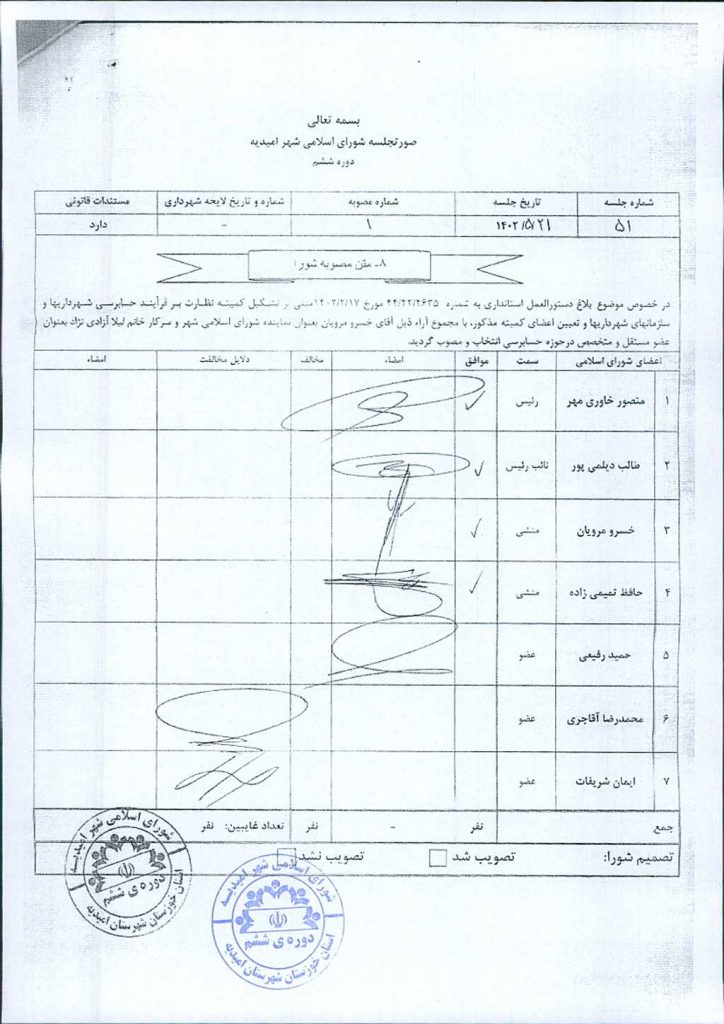 بسمه تعالی
صورتجلسه شورای اسلامی شهر امیدیه
دوره ششم
شماره جلسه تاریخ جلسه شماره مصوبه شماره و تاریخ لایحه شهرداری مستندات قانونی
۵۱ ۱۴۰۲/۵/۲۱ ۱ - دارد
۸- متن مصوبه شورا
در خصوص موضوع بلاغ دستورالعمل استانداری به شماره ۴۴/۴۲/۴۶۳۵ مورخ ۱۴۰۲/۲/۱۷ مبنی بر تشکیل کمیته نظارت بر فرآیند حسابرسی شهرداریها و
سازمانهای شهرداریها و تعیین اعضای کمیته مذکور، با مجموع آراء ذیل آقای خسرو مرویان بعنوان نماینده شورای اسلامی شهر و سرکار خانم لیلا آزادی نژاد بعنوان
عضو مستقل و متخصص درحوزه حسابرسی انتخاب و مصوب گردید.
اعضای شورای اسلامی سمت موافق امضاء مخالف دلایل مخالفت امضاء
۱ منصور خاوری مهر رئیس
۲ طالب دیلمی پور نائب رئیس
۳ خسرو مرویان منشی
۴ حافظ تمیمی زاده منشی
۵ حمید رفیعی عضو
۶ محمدرضا آقاجری عضو
۷ ایمان شریفات عضو
جمع نفر - نفر تعداد غایبین: نفر
تصمیم شورا: تصویب شد تصویب نشد
شورای اسلامی شهر امیدیه
دوره ی ششم
استان خوزستان شهرستان امیدیه
شورای اسلامی شهر امیدیه
دوره ی ششم
استان خوزستان شهرستان امیدیه